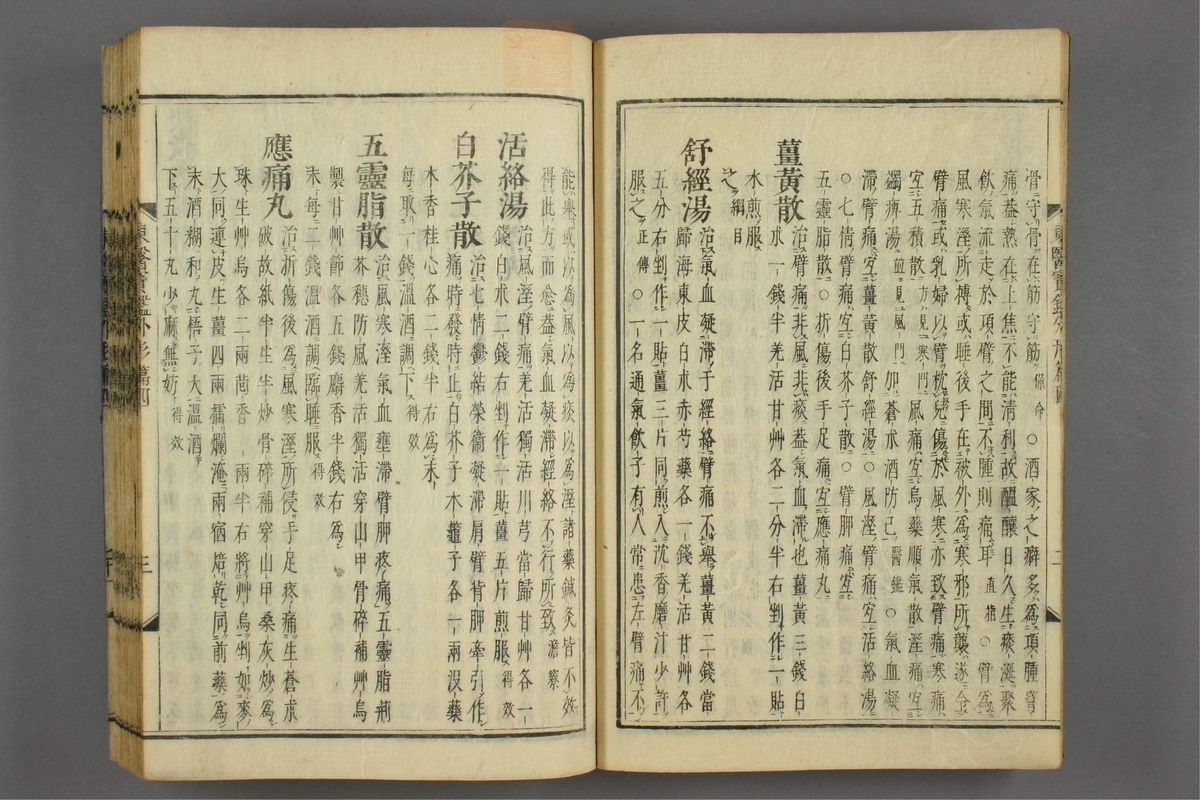 骨守骨在筋守筋保命○酒家之癖多爲項腫臂
痛盖熱在上焦不能清利故醞釀日久生痰涎聚
飮氣流走於項臂之間不腫則痛耳直指○臂爲
風寒溼所搏或睡後手在被外爲寒邪所襲遂令
臂痛或乳婦以臂枕兒傷於風寒亦致臂痛寒痛
宜五積散方見寒門風痛宜烏藥順氣散溼痛宜
蠲痺湯並見風門加蒼朮酒防已醫鑑○氣血凝
滯臂痛宜薑黄散舒經湯○風溼臂痛宜活絡湯
○七情臂痛宜白芥子散○臂胛痛宜
五靈脂散○折傷後手足痛宜應痛丸
薑黄散治臂痛非風非痰盖氣血滯也薑黄三錢白
朮一錢半羌活甘艸各二分半右剉作一貼
水煎服
之綱目
舒經湯治氣血凝滯于經絡臂痛不擧薑黄二錢當
歸海東皮白朮赤芍藥各一錢羌活甘艸各
五分右剉作一貼薑三片同煎入沈香磨汁少許
服之正傳○一名通氣飮子有人常患左臂痛不
能擧或以爲風以爲痰以爲溼諸藥鍼灸皆不效
得此方而愈盖氣血凝滯經絡不行所致澹寮
活絡湯治風溼臂痛羌活獨活川芎當歸甘艸各一
錢白朮二錢右剉作一貼薑五片煎服得效
白芥子散治七情鬱結榮衞凝滯肩臂背胛牽引作
痛時發時止白芥子木鼈子各一兩沒藥
木香桂心各二錢半右爲末
每取一錢溫酒調下得效
五靈脂散治風寒溼氣血壅滯臂胛疼痛五靈脂荊
芥穗防風羌活獨活穿山甲骨碎補艸烏
製甘艸節各五錢麝香半錢右爲
末每二錢溫酒調臨睡服得效
應痛丸治折傷後爲風寒溼所侵手足疼痛生蒼朮
破故紙半生半炒骨碎補穿山甲桑灰炒爲
珠生艸烏各二兩茴香一兩半右將艸烏剉如麥
大同連皮生薑四兩擂爛淹兩宿焙乾同前藥爲
末酒糊和丸梧子大溫酒
下五十丸少麻無妨得效
東醫寶鑑外形篇四